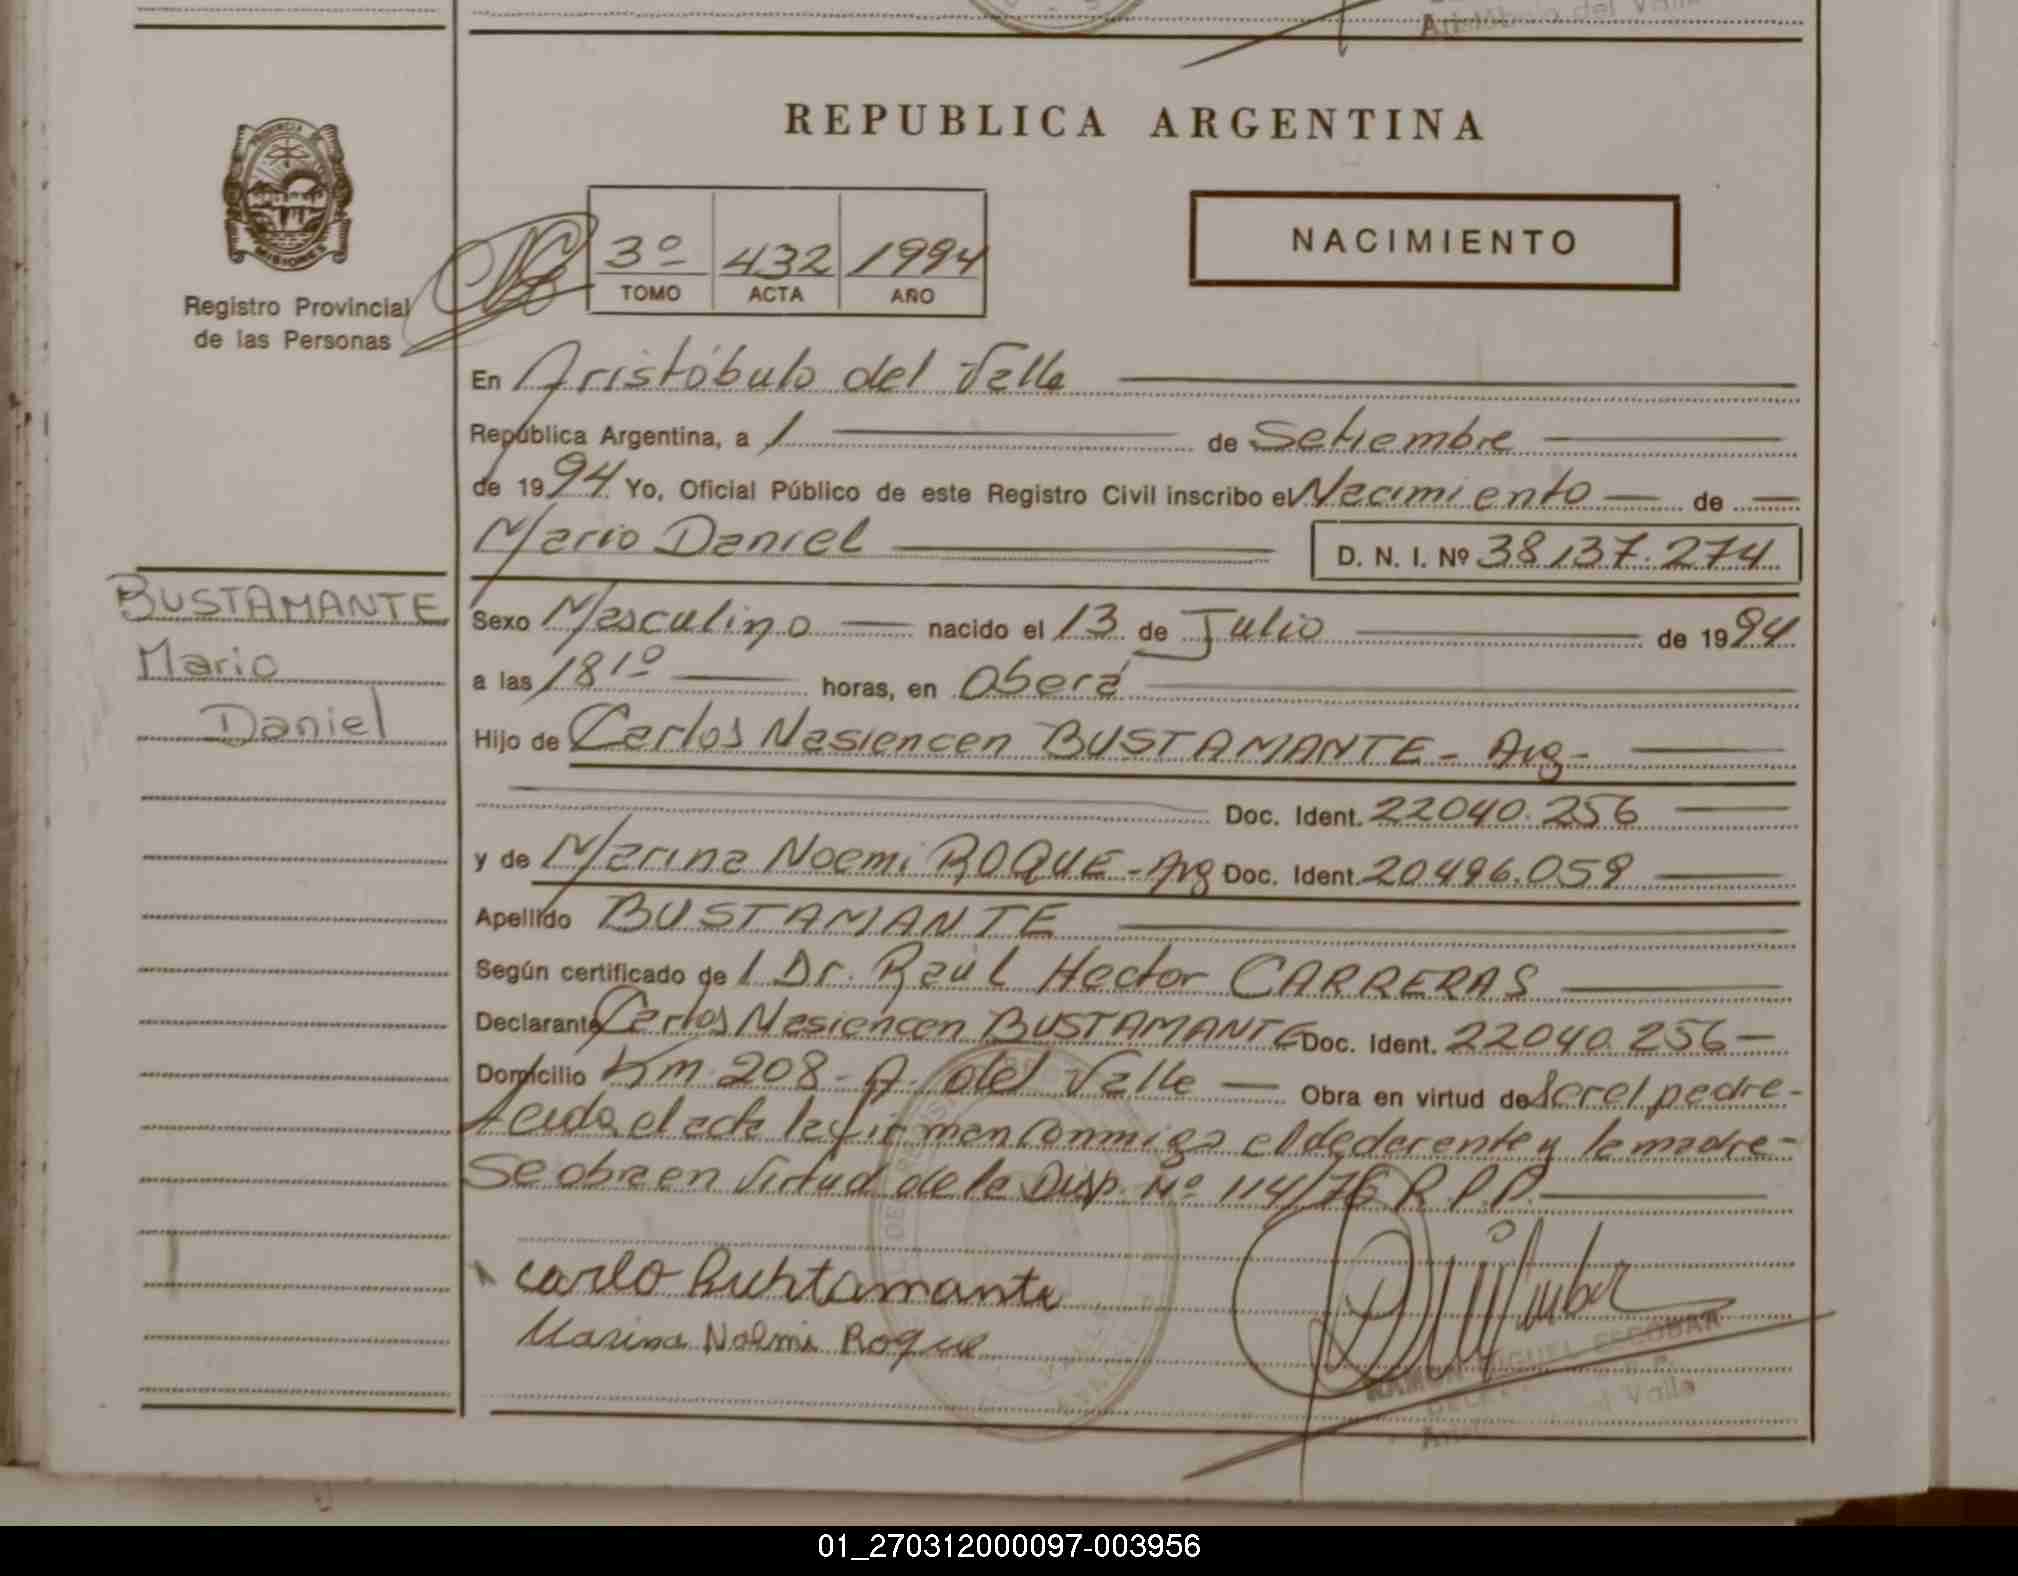 REPUBLICA ARGENTINA
PROVINCIA
MISIONES
Registro Provincial
de las Personas
3º 432 1994
TOMO ACTA AÑO
NACIMIENTO
En Aristóbulo del Valle
República Argentina, a 1 de Setiembre
de 1994 Yo, Oficial Público de este Registro Civil inscribo el Nacimiento de
Mario Daniel D. N. I. Nº 38.137.274
BUSTAMANTE
Mario
Daniel
Sexo Masculino nacido el 13 de Julio de 1994
a las 18 10 horas, en Oberá
Hijo de Carlos Nasiencen BUSTAMANTE - Arg -
Doc. Ident. 22040.256
y de Marina Noemi ROQUE - Arg Doc. Ident. 20496.059
Apellido BUSTAMANTE
Según certificado de l Dr. Raúl Hector CARRERAS
Declarante Carlos Nasiencen BUSTAMANTE Doc. Ident. 22040.256 -
Domicilio Km 208 - A. del Valle Obra en virtud de ser el padre -
Leida el acta la firman conmigo el declarente y la madre -
Se obra en virtud de la Disp. Nº 114/76 R.P.P.
Carlo Buhtamante
Marina Noemi Roque
RAMON MIGUEL ESCOBAR
del Valle
01_270312000097-003956